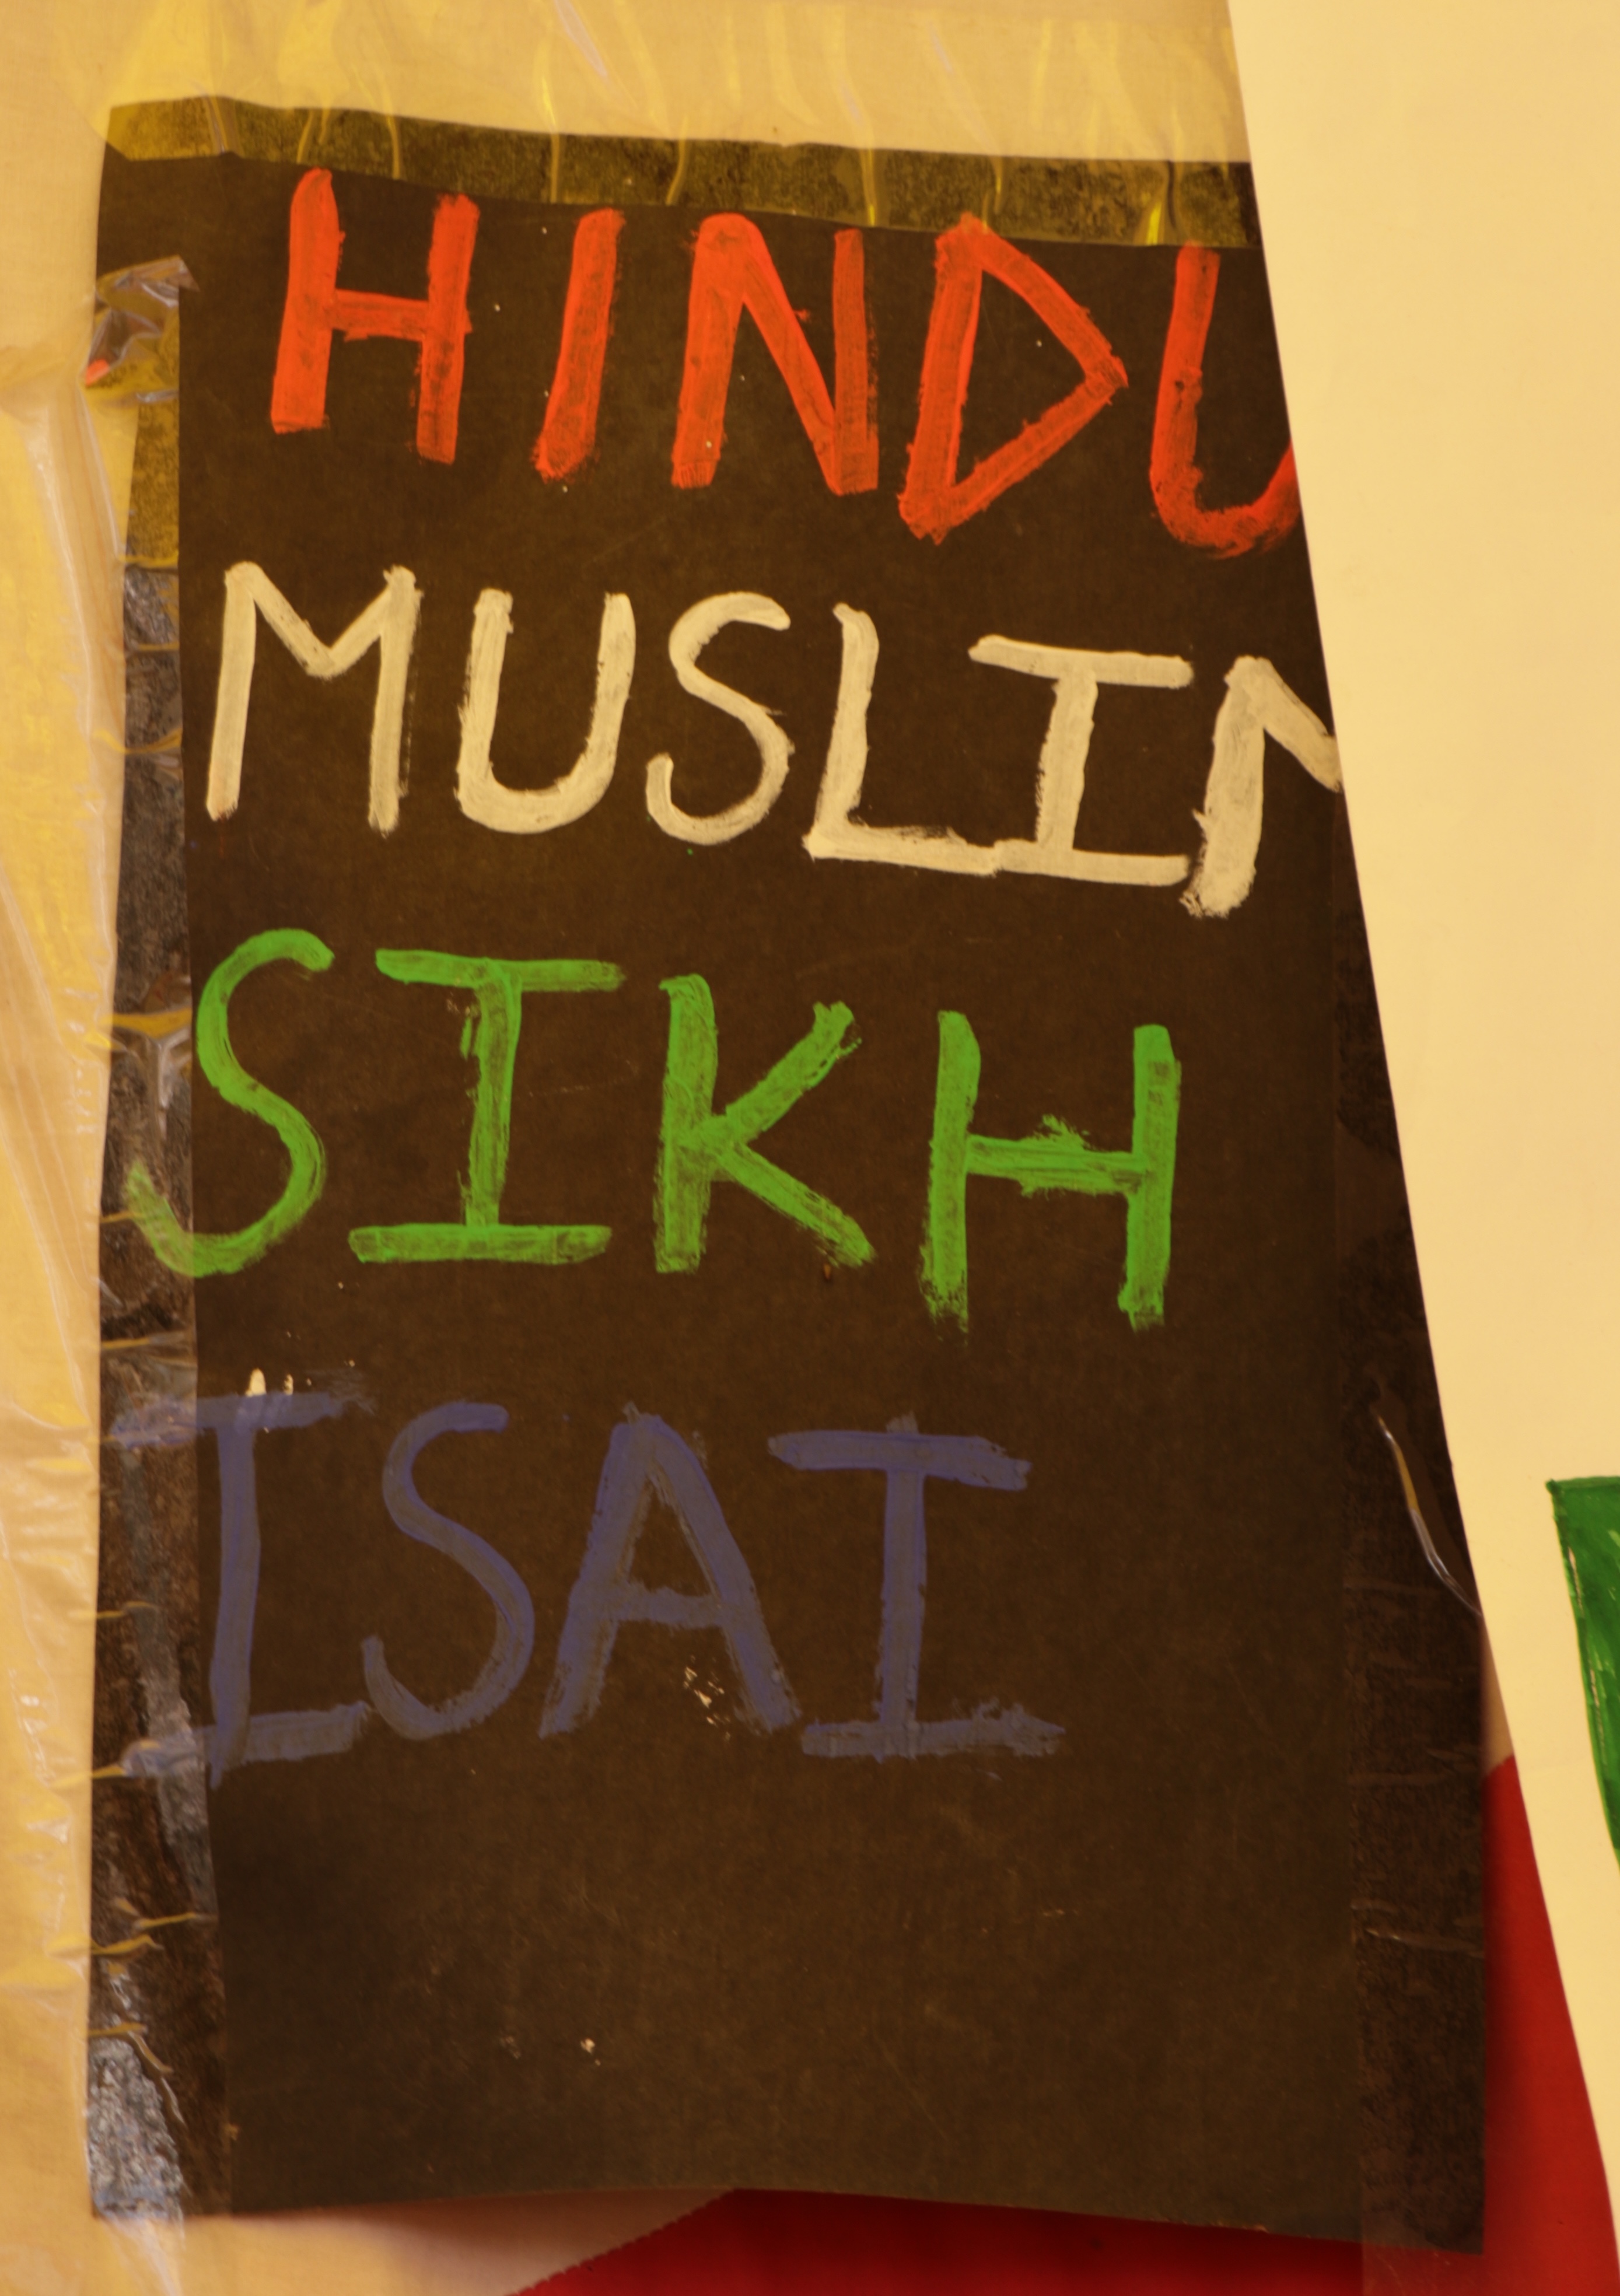 HINDU
MUSLIM
SIKH
ISAI